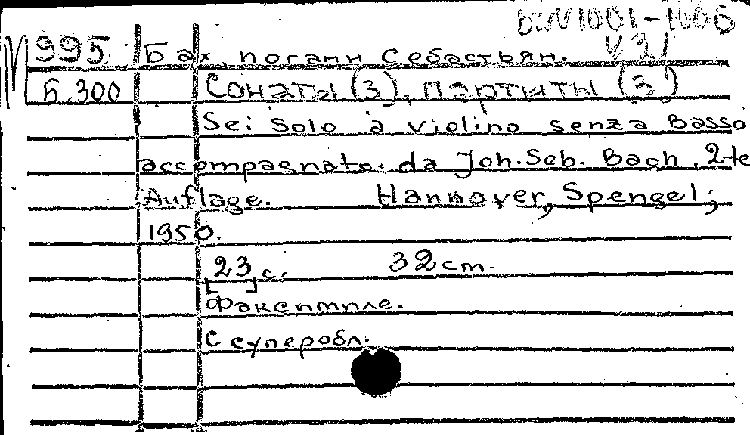 BWV 1001-1006
V 21
M 995 Бах, Иоганн Себастьян.
Б.300 Сонаты (3), партиты (3)
Sei Solo à violino senza Basso
accompagnato. da Joh. Seb. Bach. 2-te
Auflage. Hannover, Spengel,
1950.
[23] с. 32 cm.
Факсимиле.
С суперобл.